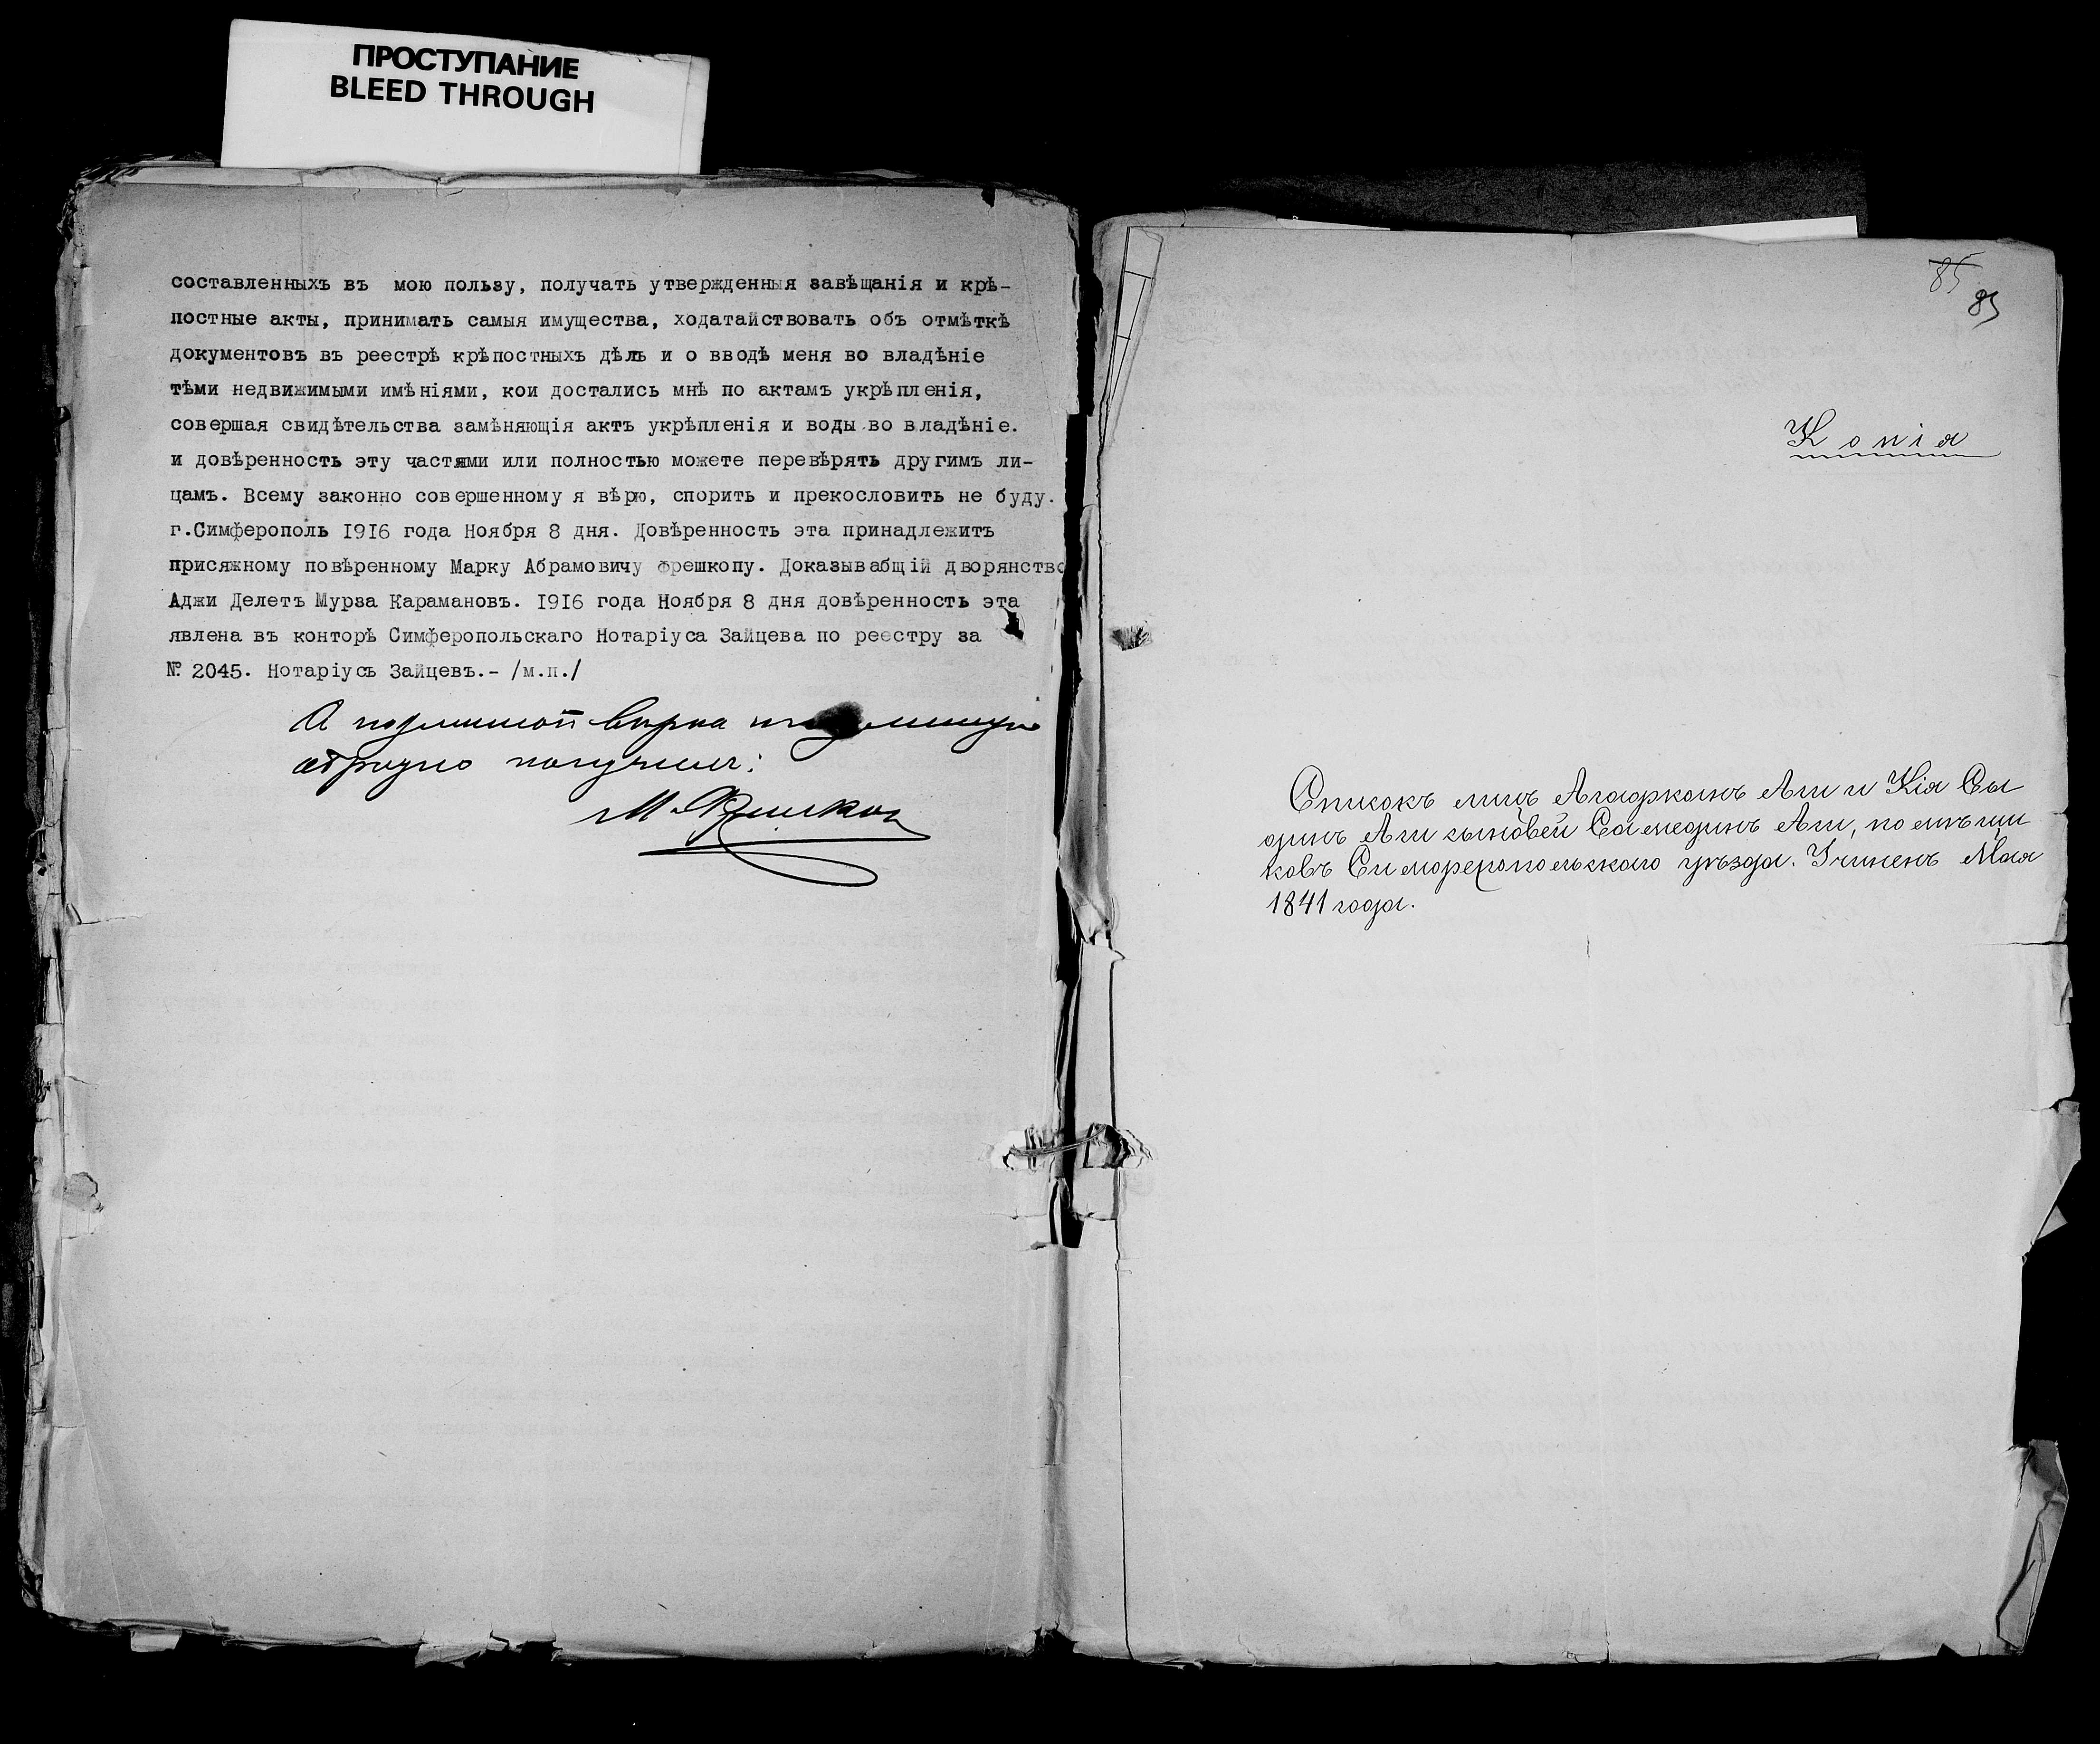 ПРОСТУПАНИЕ
BLEED THROUGH
составленныхъ въ мою пользу, получать утвержденныя завѣщанія и крѣ-
постные акты, принимать самыя имущества, ходатайствовать объ отмѣткѣ
документовъ въ реестрѣ крѣпостныхъ дѣлъ и о вводѣ меня во владѣніе
тѣми недвижимыми имѣніями, кои достались мнѣ по актамъ укрѣпленія,
совершая свидѣтельства замѣняющія актъ укрѣпленія и воды во владѣніе.
и довѣренность эту частями или полностью можете перевѣрять другимъ ли-
цамъ. Всему законно совершенному я вѣрю, спорить и прекословить не буду.
г.Симферополь 1916 года Ноября 8 дня. Довѣренность эта принадлежитъ
присяжному повѣренному Марку Абрамовичу Фрешкопу. Доказывабщій дворянство
Аджи Делетъ Мурза Карамановъ. 1916 года Ноября 8 дня довѣренность эта
явлена въ конторѣ Симферопольскаго Нотаріуса Зайцева по реестру за
№ 2045. Нотаріусъ Зайцевъ.- /м.п./
обратно получилъ:
85
85
Копія
Списокъ
Аги сыновей Самединъ Аги, помѣщи
ковъ Симферопольскаго уѣзда. Учиненъ Мая
1841 года.